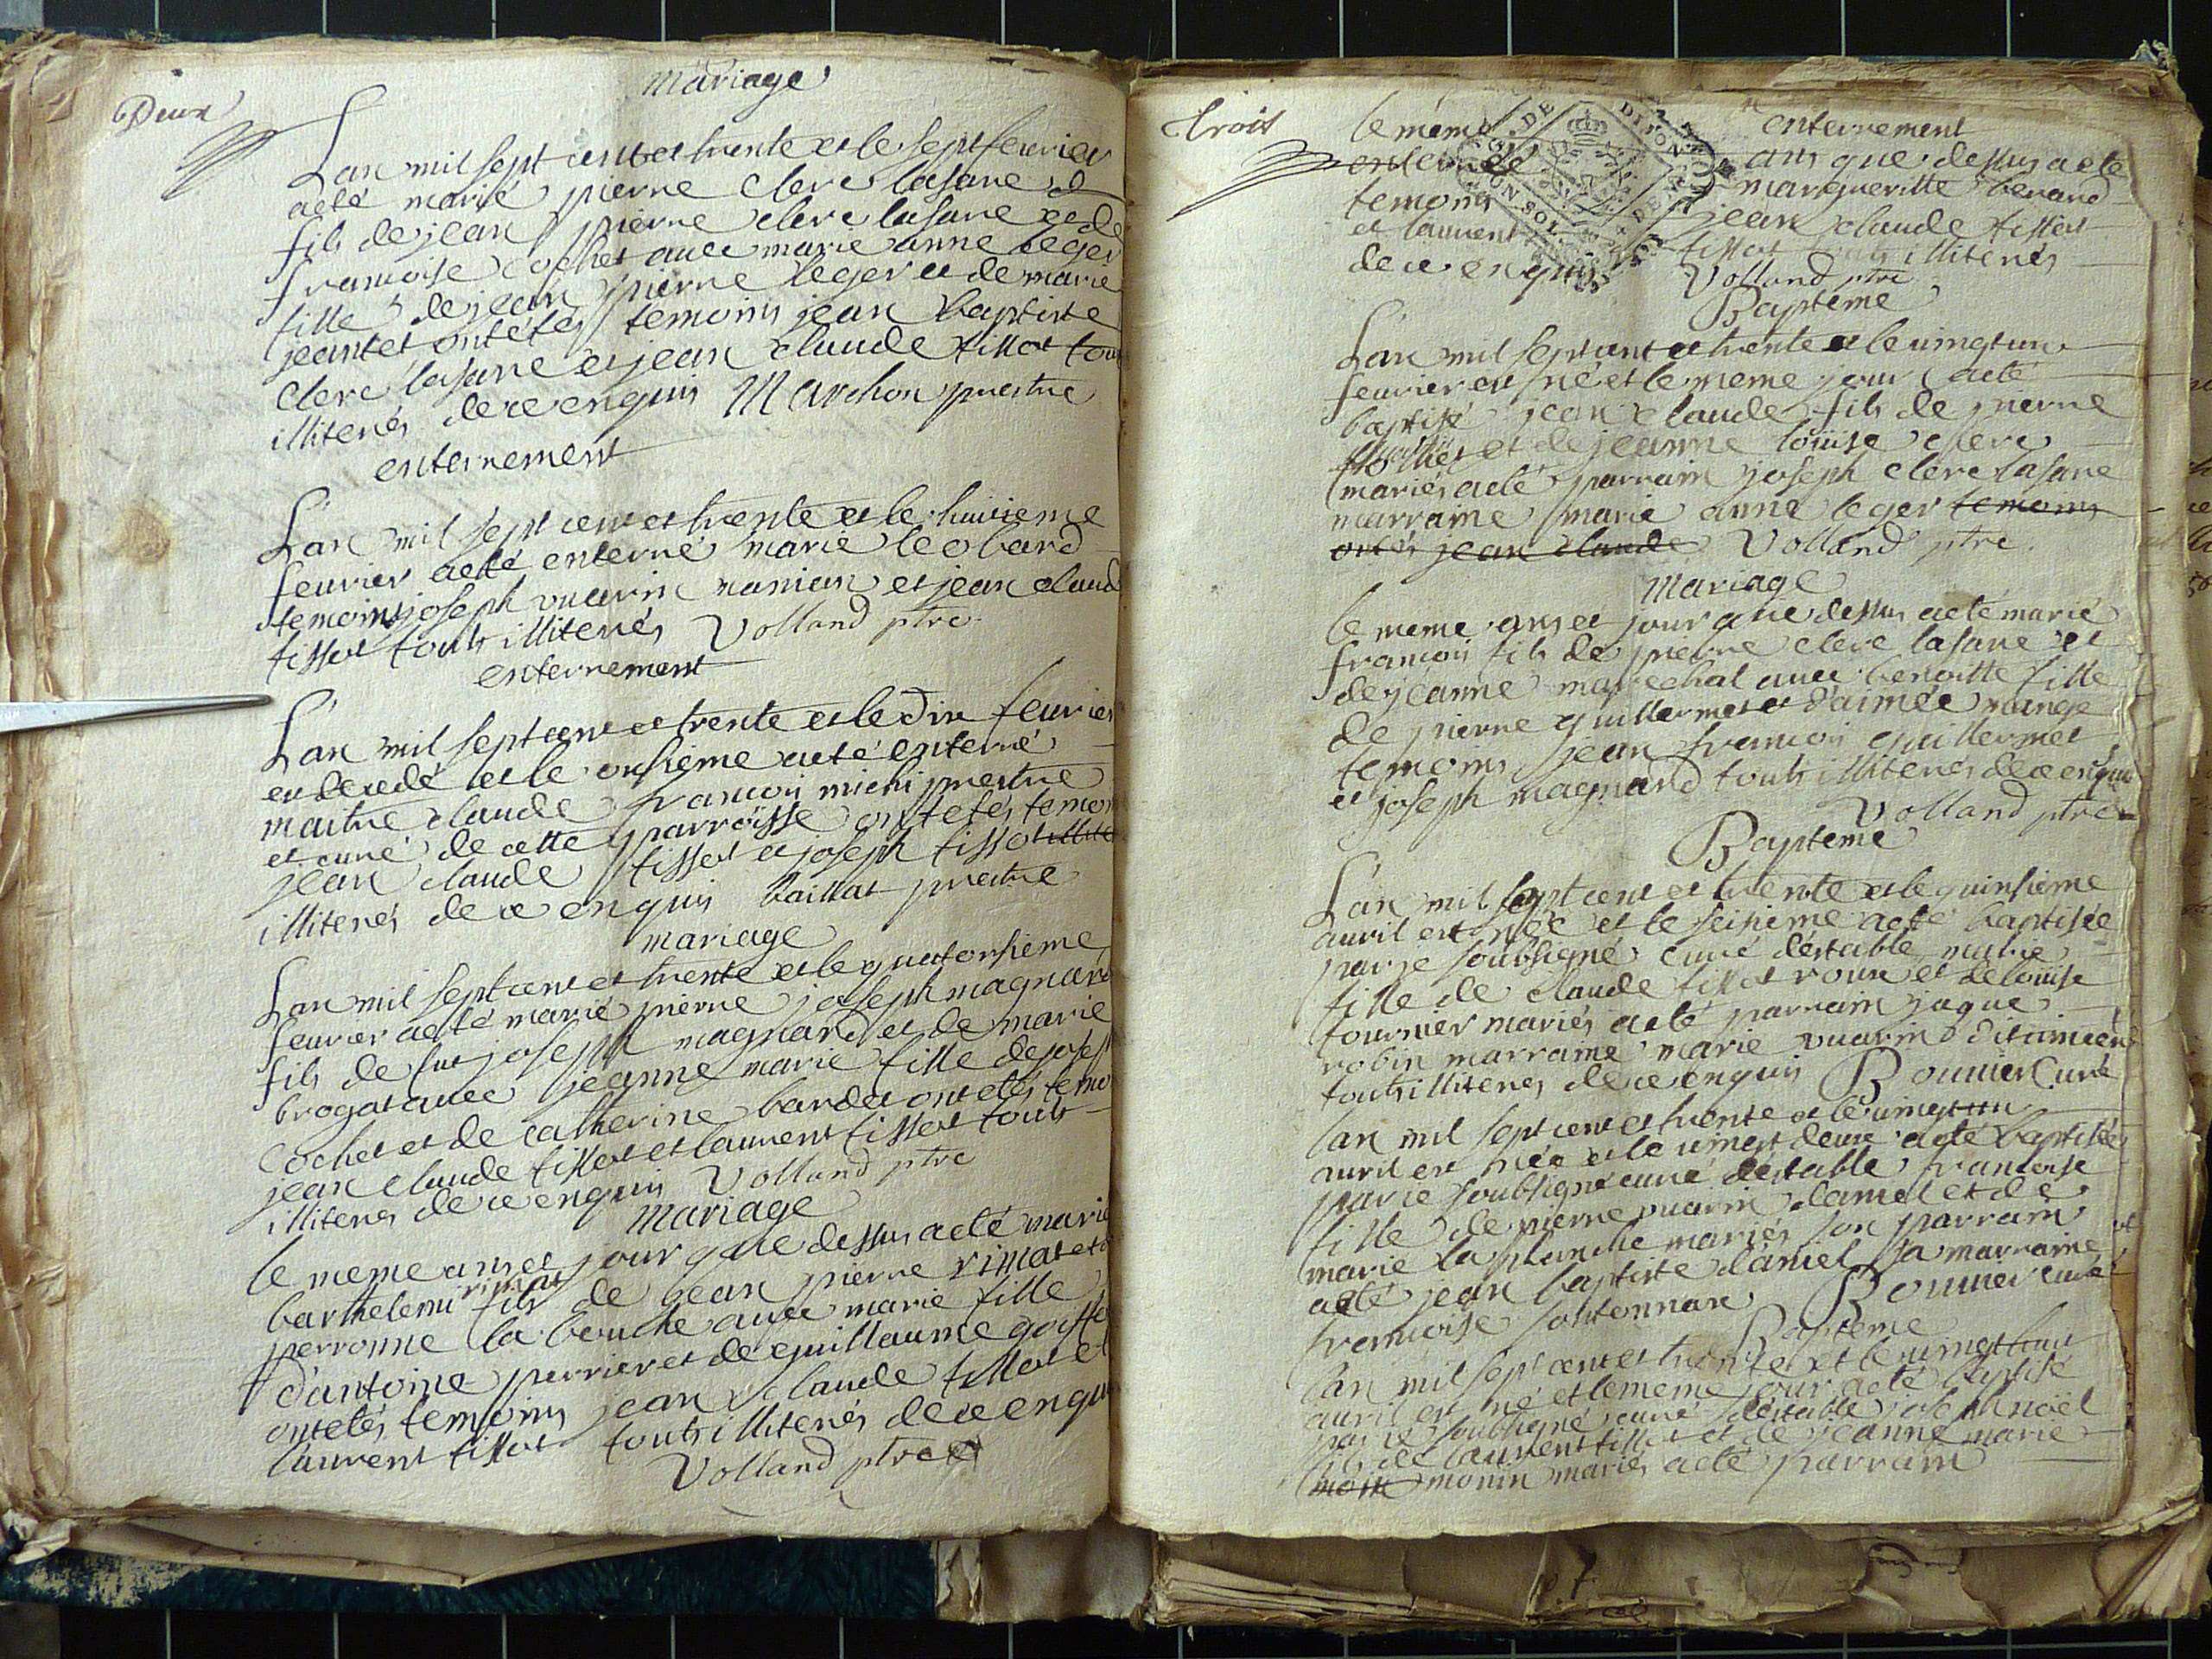 Deux
mariage
Lan mil sept cent et trente et le sept feurier
acté marié pierre clerc lasane et
fils de jean pierre clerc lasane et de
francoise cochet auec marie anne leger
fille de jean pierre leger et de marie
jeantet ont étés temoins jean baptiste
clerc lasane et jean claude tissot tous
illiterés de ce enquis Marchon prestre
enterrement
Lan mil sept cent et trente et le huitieme
feurier acté enterré marie leobard
temoins joseph vuarin manian et jean claud
tissot touts illiterés Volland ptre
enterrement
Lan mil sept cent et trente et le dix feurier
est decedé et le onsieme acté enterré
maitre claude francois michi prestre
et curé de cette parroisse ont etés temoi
jean claude tissot et joseph tissot illite
illiterés de ce enquis baillat prestre
mariage
Lan mil sept cent et trente et le quatorsieme
feurier acté marié pierre joseph magnard
fils de fut joseph magnard et de marie
brogat auec jeanne marie fille de josep
cochet et de catherine bardet ont etés temo
jean claude tissot et laurent tissot touts
illiterés de ce enquis Volland ptre
mariage
le meme ans et jour que dessus acté marié
barthelemi rimat fils de jean pierre rimat et d
perronne la bouche auec marie fille
d'antoine perrier et de guillaume goiffo
ont etés temoins jean claude tissot et
laurent tissot touts illiterés de ce enqui
Volland ptre
trois
enterrement
le méme ans que dessus acté
enterrée margueritte berard
temoins jean claude tissot
et laurent tissot illiterés
de ce enquis Volland ptre
DE DIJON
Baptéme
Lan mil sept cent et trente et le uingt un
feurier est né et le meme jour acté
baptisé jean claude fils de pierre
et de jeanne loüise clerc
mariés acté parrain joseph clerc lasane
marraine marie anne leger temoins
ontés jean claude Volland ptre
mariage
le meme ans et jour que dessus acté marié
francois fils de pierre clerc lasane et
de jeanne marechal auec benoitte fille
de pierre guillermet et d'aimée mange
temoins jean francois guillermet
et joseph magnard touts illiterés de ce enquis
Volland ptre
Baptéme
Lan mil sept cent et trente et le quinsieme
auril est née et le seisieme acté baptisée
par je soubsigné curé déstable
fille de claude tissot roux et de louise
tournier mariés acté parrain jaque
robin marraine marie vuarin
touts illiterés de ce enquis Bouuier Curé
Lan mil sept cent et trente et le uingt un
auril est née et le uingt deux acté baptisée
par je soubsigné curé déstable francoise
fille de pierre vuarin damel et de
marie la planche mariés son parrain
acté jean baptiste damel sa marraine
francoise sontonnax Bouuier curé
Bapteme
Lan mil sept cent et trente et le uingt huit
auril est né et le meme jour acté baptisé
par je soubsigné curé déstable joseph noël
fils de laurent tissot et de jeanne marie
moin monin mariés acté parrain